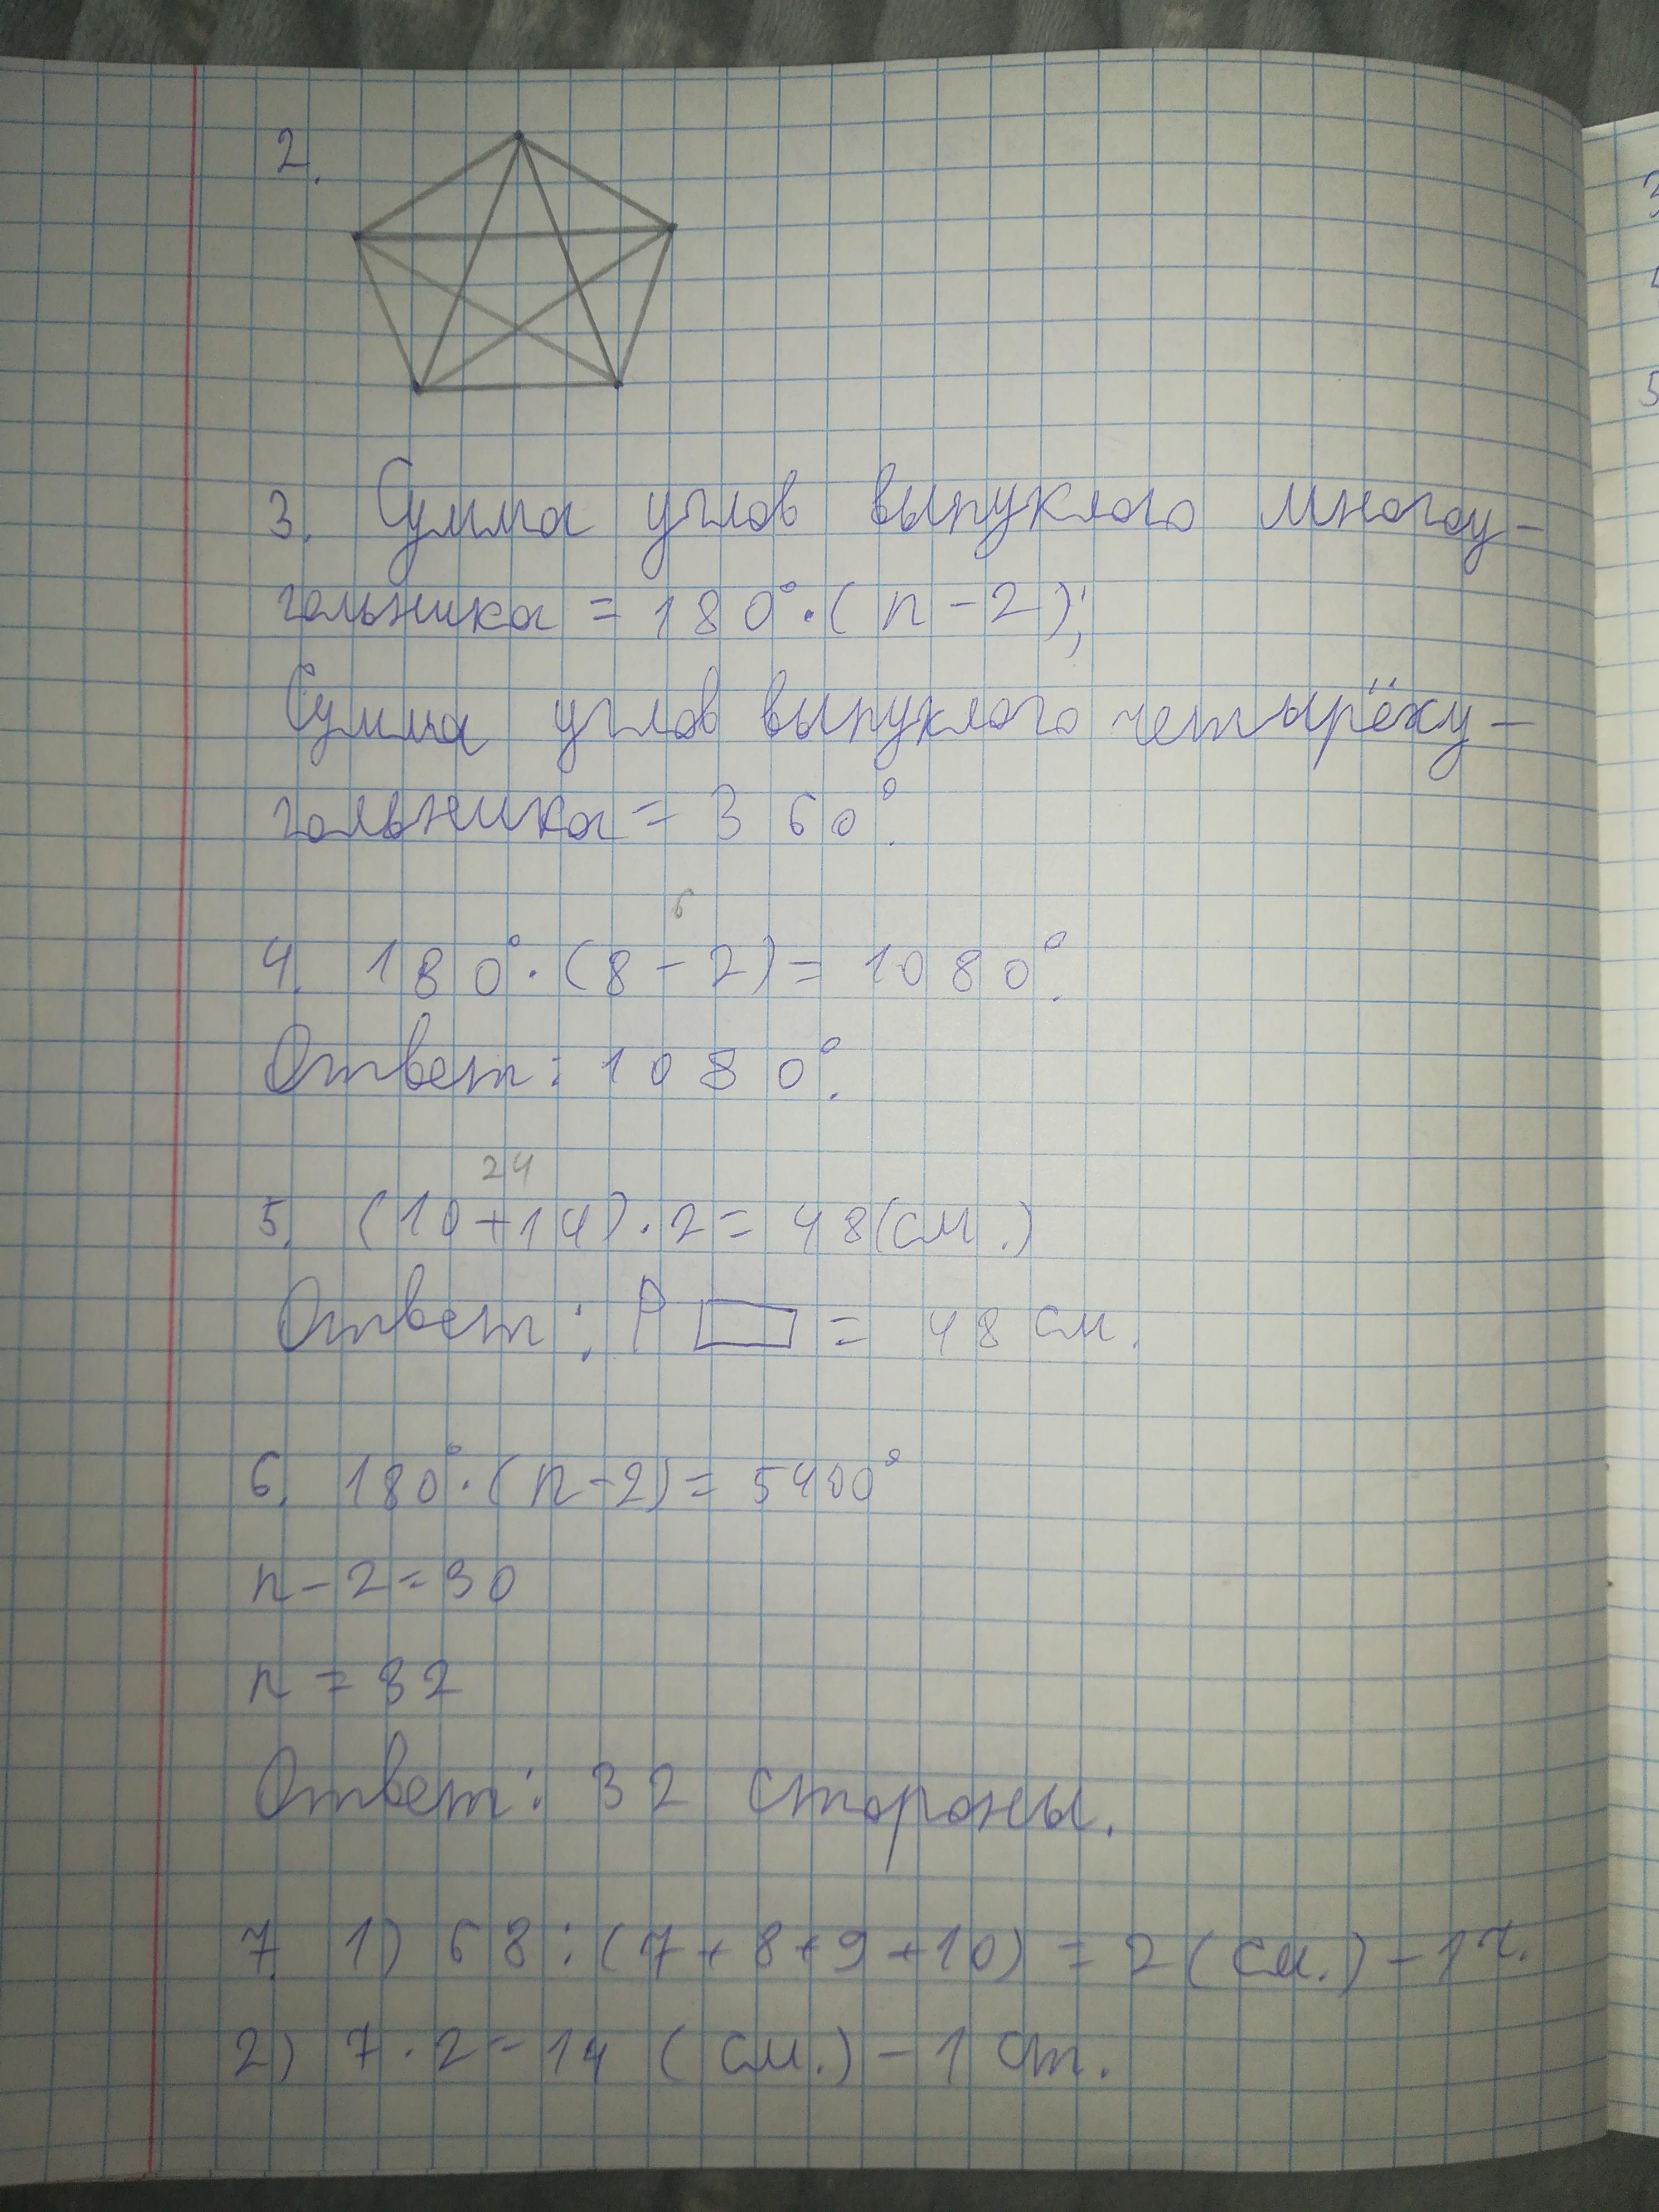 2.
3. Сумма углов выпуклого многоу-
гольника = 180°·(n-2);
Сумма углов выпуклого четырёху-
гольника = 360°.
6
4. 180°·(8-2)=1080°.
Ответ: 1080°.
24
5. (10+14)·2=48(см.)
Ответ: P▭ = 48 см.
6. 180°·(n-2)=5400°
n-2=30
n=32
Ответ: 32 стороны.
7. 1) 68:(7+8+9+10)=2(см.)-1ч.
2) 7·2=14 (см.)-1 ст.